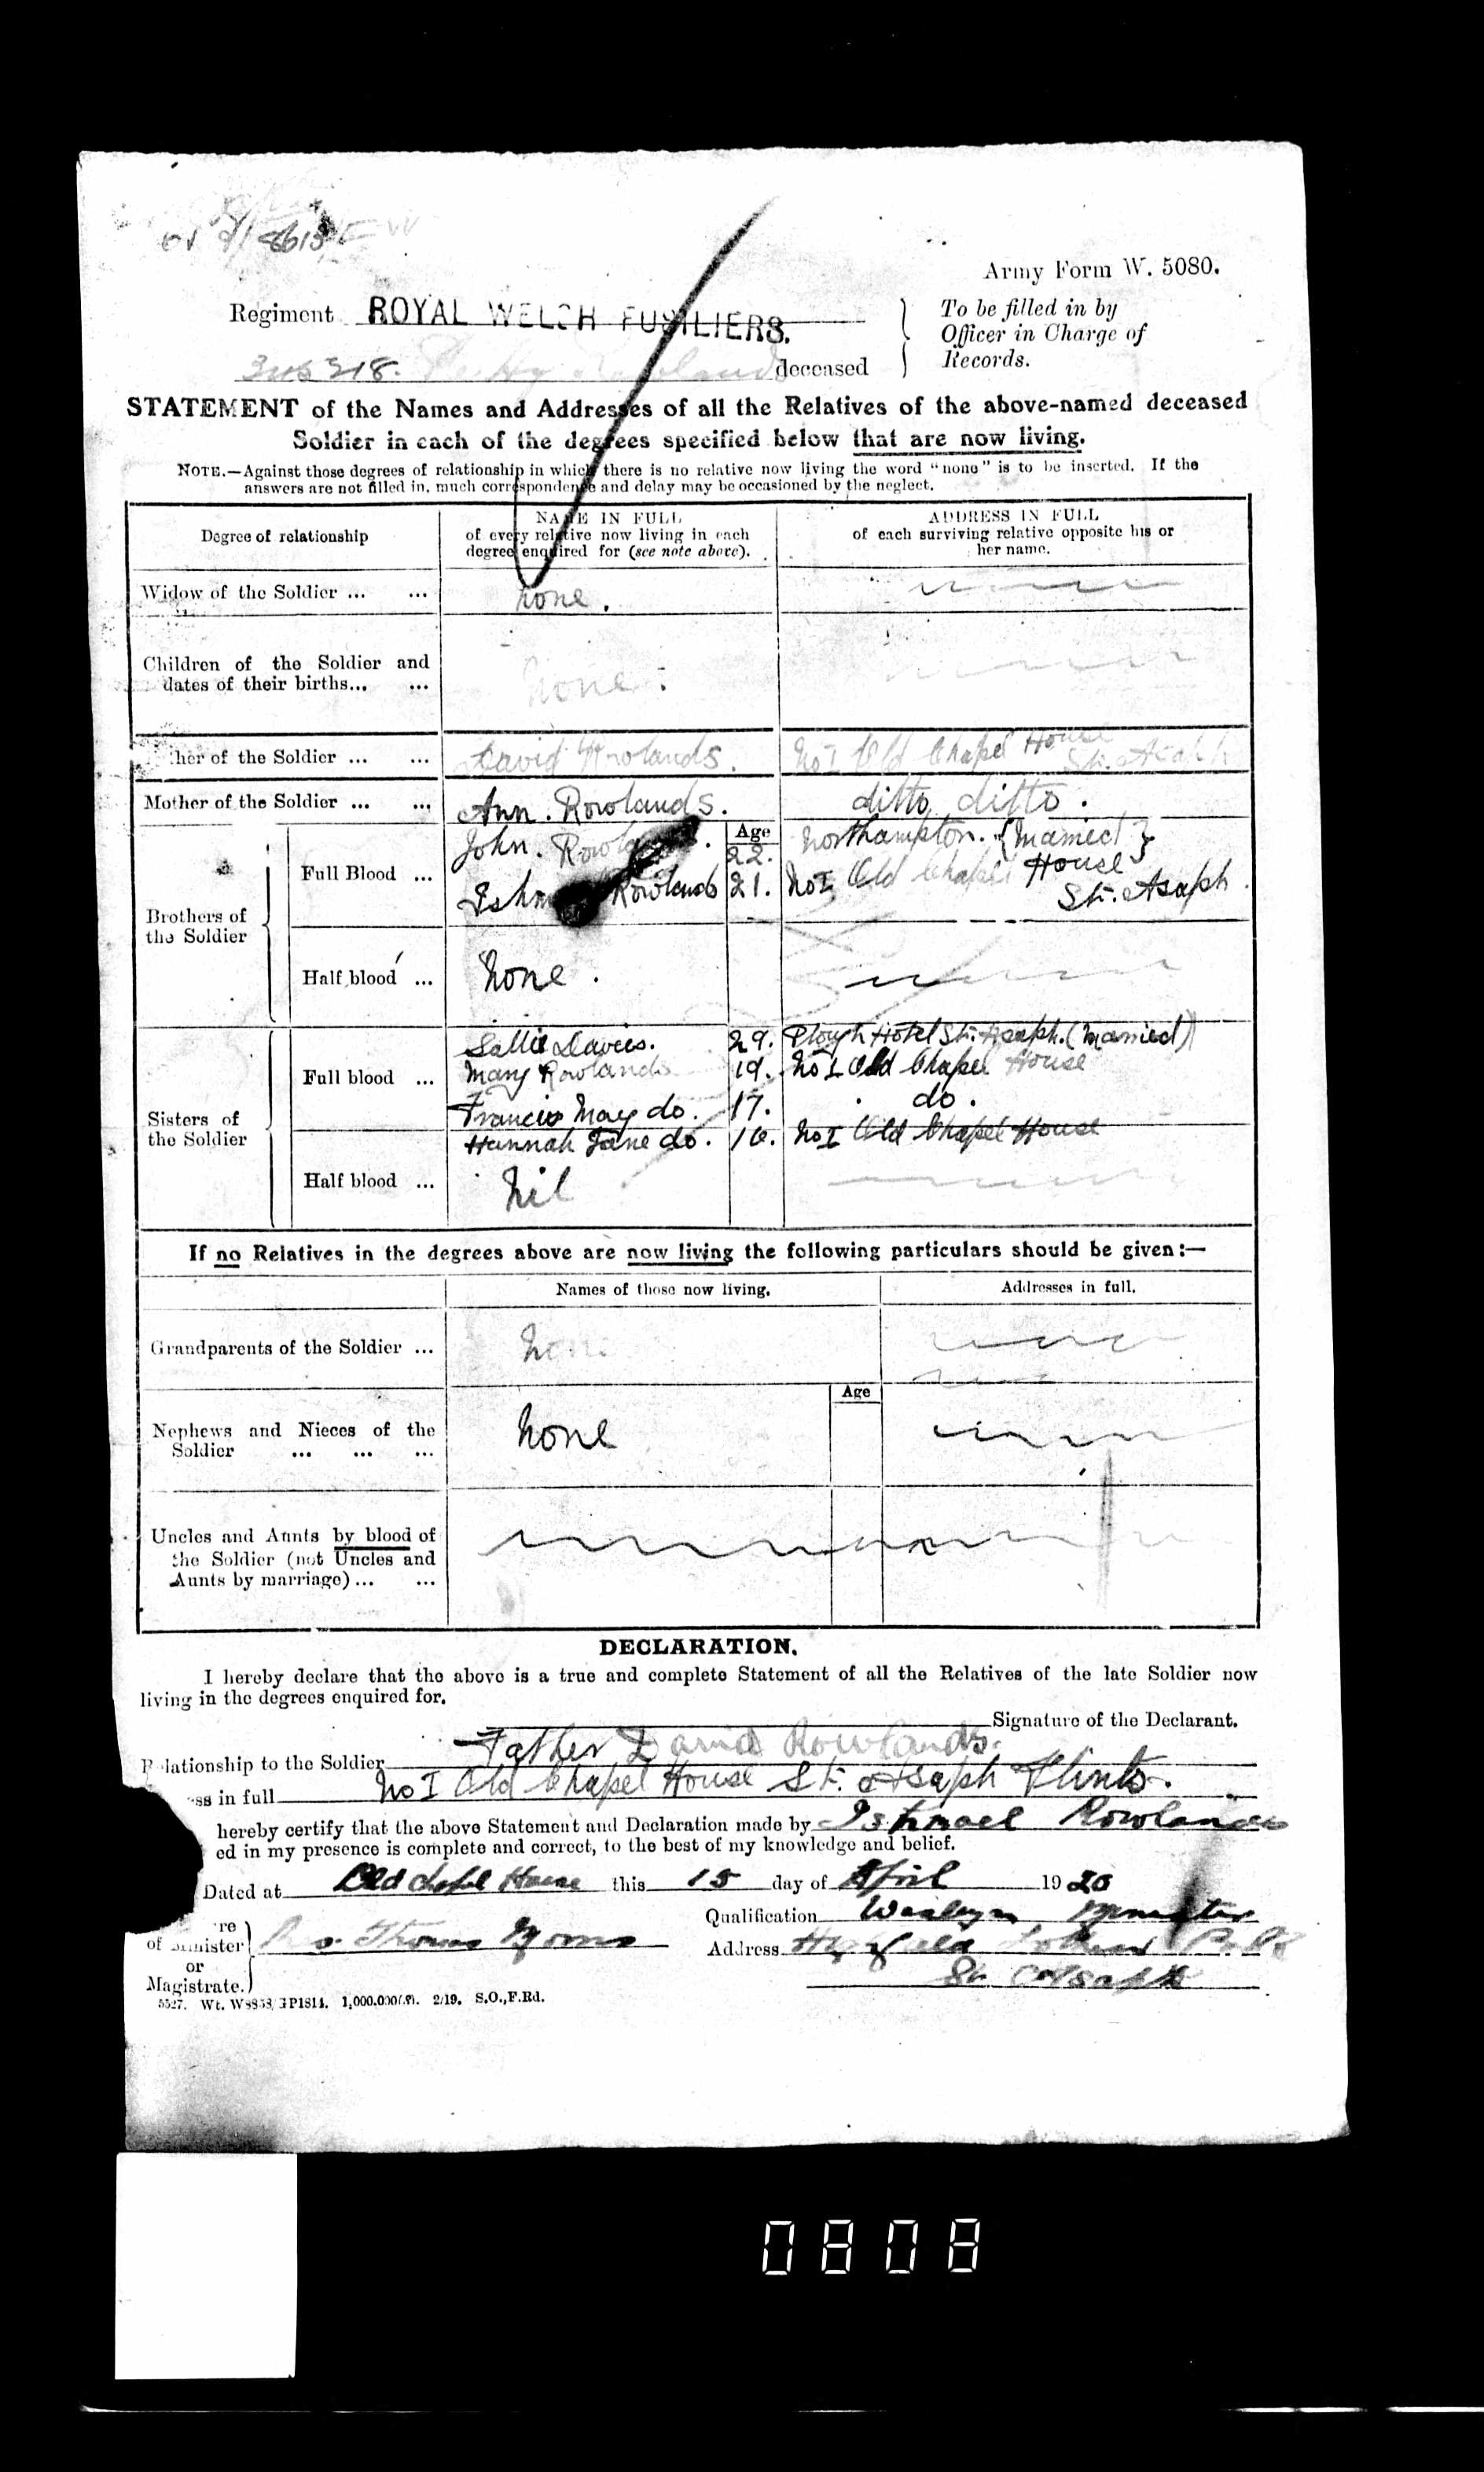 Army Form W. 5080.
Regiment ROYAL WELCH FUSILIERS.
To be filled in by
Officer in Charge of
Records.
deceased
STATEMENT of the Names and Addresses of all the Relatives of the above-named deceased
Soldier in each of the degrees specified below that are now living.
NOTE.—Against those degrees of relationship in which there is no relative now living the word "none" is to be inserted. If the
answers are not filled in, much correspondence and delay may be occasioned by the neglect.
Degree of relationship
NAME IN FULL
of every relative now living in each
degree enquired for (see note above).
ADDRESS IN FULL
of each surviving relative opposite his or
her name.
Widow of the Soldier ... ... none.
Children of the Soldier and
dates of their births... ... none.
her of the Soldier ... ... David Rowlands. No I Old Chapel House
St. Asaph
Mother of the Soldier ... ... Ann. Rowlands. ditto ditto.
Age
Brothers of
the Soldier
Full Blood ... John. Rowlands. 22. Northampton. {Married}
Rowlands 21. No I Old Chapel House
St. Asaph.
Half blood ... None.
Sisters of
the Soldier
Full blood ... Sallie Davies. 29. Plough Hotel St. Asaph. (Married)
Mary Rowlands 19. No I Old Chapel House
Francis May do. 17. do.
Hannah Jane do. 16. No I Old Chapel House
Half blood ... Nil
If no Relatives in the degrees above are now living the following particulars should be given:—
Names of those now living. Addresses in full.
Grandparents of the Soldier ... None
Age
Nephews and Nieces of the
Soldier ... ... ... None
Uncles and Aunts by blood of
the Soldier (not Uncles and
Aunts by marriage)... ...
DECLARATION.
I hereby declare that the above is a true and complete Statement of all the Relatives of the late Soldier now
living in the degrees enquired for.
Signature of the Declarant.
Relationship to the Soldier Father David Rowlands.
ss in full No I Old Chapel House St. Asaph Flints.
hereby certify that the above Statement and Declaration made by Ishmael Rowlands
ed in my presence is complete and correct, to the best of my knowledge and belief.
Dated at Old Chapel House this 15 day of April 1920
Qualification Wesleyan Minister
re
of Minister
or
Magistrate.
Thomas
Address
St Asaph
5527. Wt. 1,000.000 2/19. S.O.,F.Rd.
0808